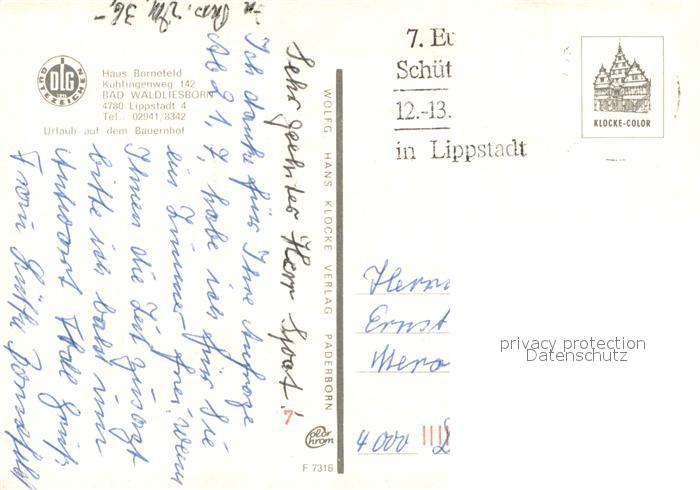 Haus Bornefeld
Kühlingenweg 142
BAD WALDLIESBORN
4780 Lippstadt 4
Tel.. 02941/8342
Urlaub auf dem Bauernhof
DLG
GÜTEZEICHEN
Sehr geehrter Herr Spoot!
Ich danke für Ihre Anfrage
Ab 21.7. habe ich für Sie
ein Zimmer frei. Wenn
Ihnen die Zeit zusagt
bitte ich bald um
Antwort
Frau Bornefeld
WOLFG. HANS KLOCKE VERLAG PADERBORN
7
color chrom
F 7316
7. Eu
Schüt
12.-13.
in Lippstadt
KLOCKE-COLOR
Herrn
Ernst
4000
privacy protection
Datenschutz